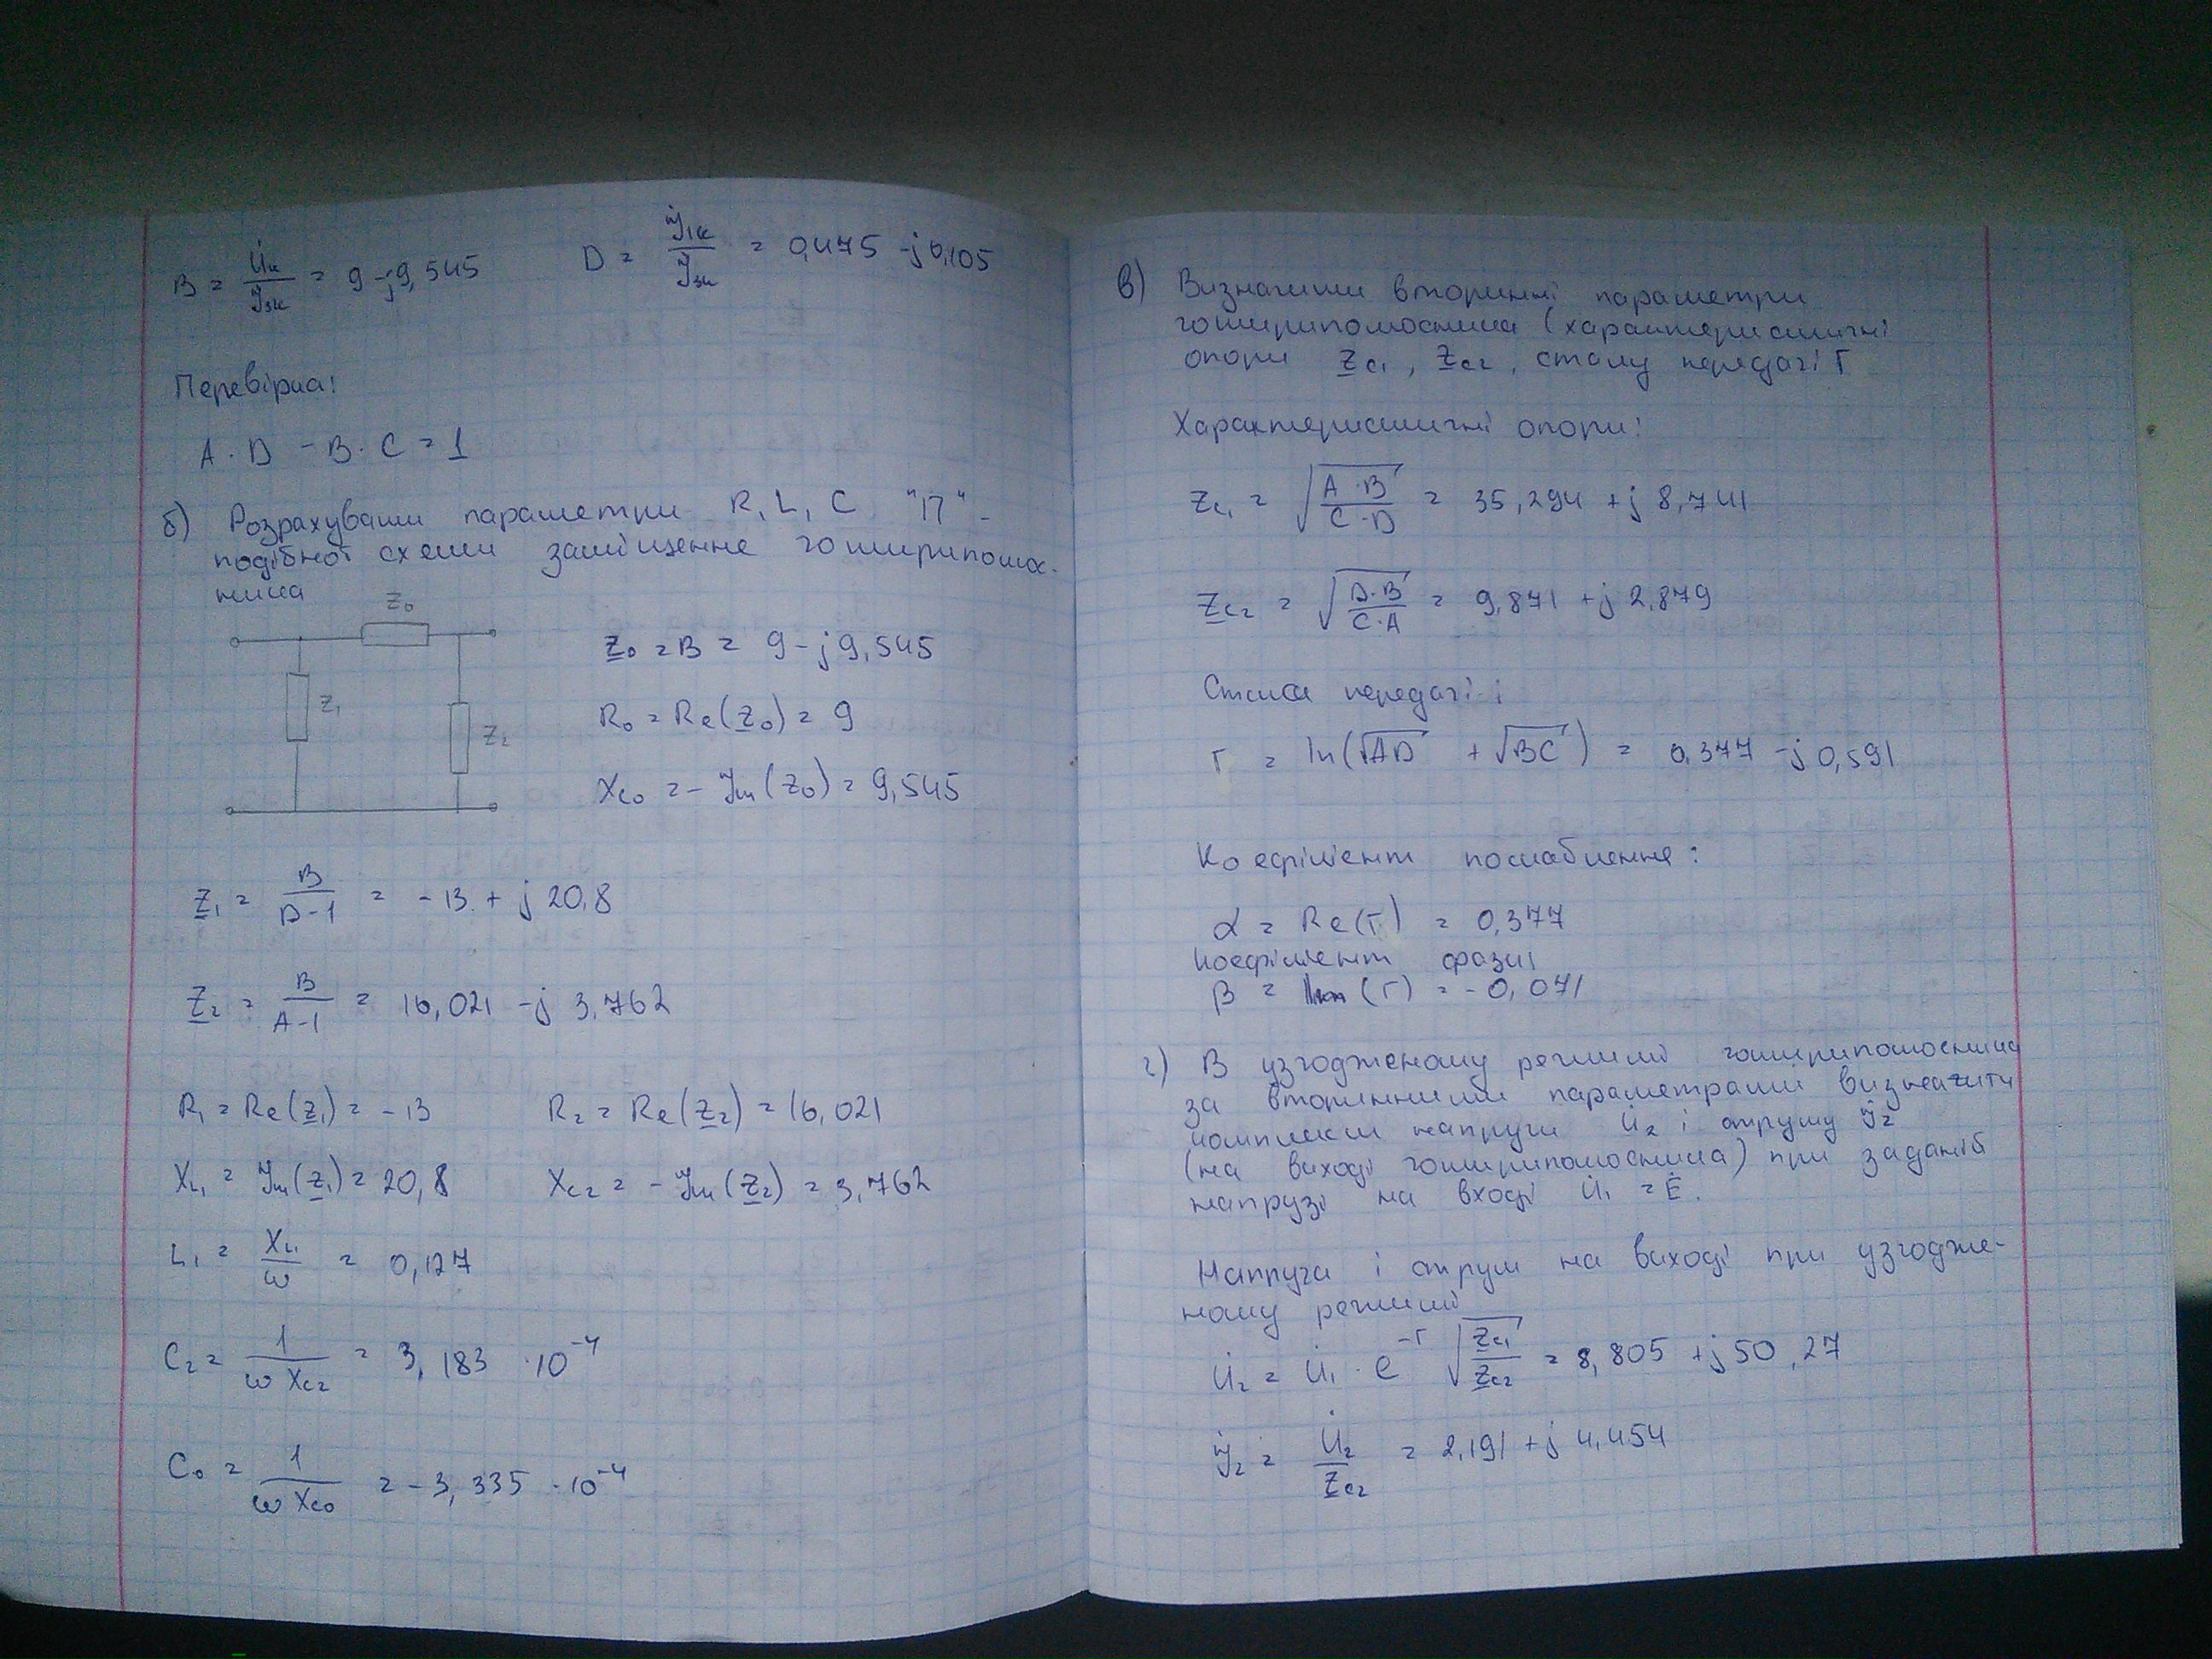 B = U̇к / İ3к = 9 - j9,545
D = İ1к / İ3к = 0,475 - j0,105
Перевірка:
A · D - B · C = 1
б) Розрахувати параметри R, L, C "П" -
подібної схеми заміщення чотириполюс-
ника
Z0
Z1
Z2
Z0 = B = 9 - j9,545
R0 = Re(Z0) = 9
XC0 = - Im(Z0) = 9,545
Z1 = B / (D - 1) = -13 + j 20,8
Z2 = B / (A - 1) = 16,021 - j 3,762
R1 = Re(Z1) = -13
R2 = Re(Z2) = 16,021
XL1 = Im(Z1) = 20,8
XC2 = - Im(Z2) = 3,762
L1 = XL1 / ω = 0,127
C2 = 1 / (ω XC2) = 3,183 · 10⁻⁴
C0 = 1 / (ω XC0) = -3,335 · 10⁻⁴
в) Визначити вторинні параметри
чотириполюсника (характеристичні
опори ZC1, ZC2, сталу передачі Г
Характеристичні опори:
ZC1 = √(A·B / C·D) = 35,294 + j 8,741
ZC2 = √(D·B / C·A) = 9,871 + j 2,879
Стала передачі:
Г = ln(√AD + √BC) = 0,377 - j0,591
Коефіцієнт послаблення:
α = Re(Г) = 0,377
коефіцієнт фази:
β = Im(Г) = -0,071
г) В узгодженому режимі чотириполюсника
за вторинними параметрами визначити
комплекси напруги U̇2 і струму İ2
(на виході чотириполюсника) при заданій
напрузі на вході U̇1 = Ė.
Напруга і струм на виході при узгодже-
ному режимі
U̇2 = U̇1 · e^-Г √(ZC1 / ZC2) = 8,805 + j50,27
İ2 = U̇2 / ZC2 = 2,191 + j 4,454